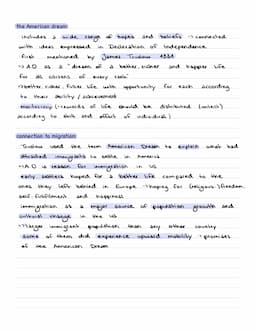 the American dream
includes a wide range of hopes and beliefs → connected
with ideas expressed in Declaration of Independence
first mentioned by James Truslow 1931
→ AD as a "dream of a better, richer and happier life
for all citizens of every rank"
→ better, richer, fuller life with opportunity for each according
to their ability / achievement
meritocracy (→ rewards of life should be distributed
according to skill and effort of individual)
connection to migration
Truslow used the term American Dream to explain what had
attracted immigrants to settle in America
→ AD is reason for immigration in US
early settlers hoped for a better life compared to the
ones they left behind in Europe → hoping for (religious) freedom
self-fulfillment and happiness
immigration as a major source of population growth and
cultural change in the US
→ larger immigrant population than any other country
some of them did experience upward mobility → promises
of the American Dream